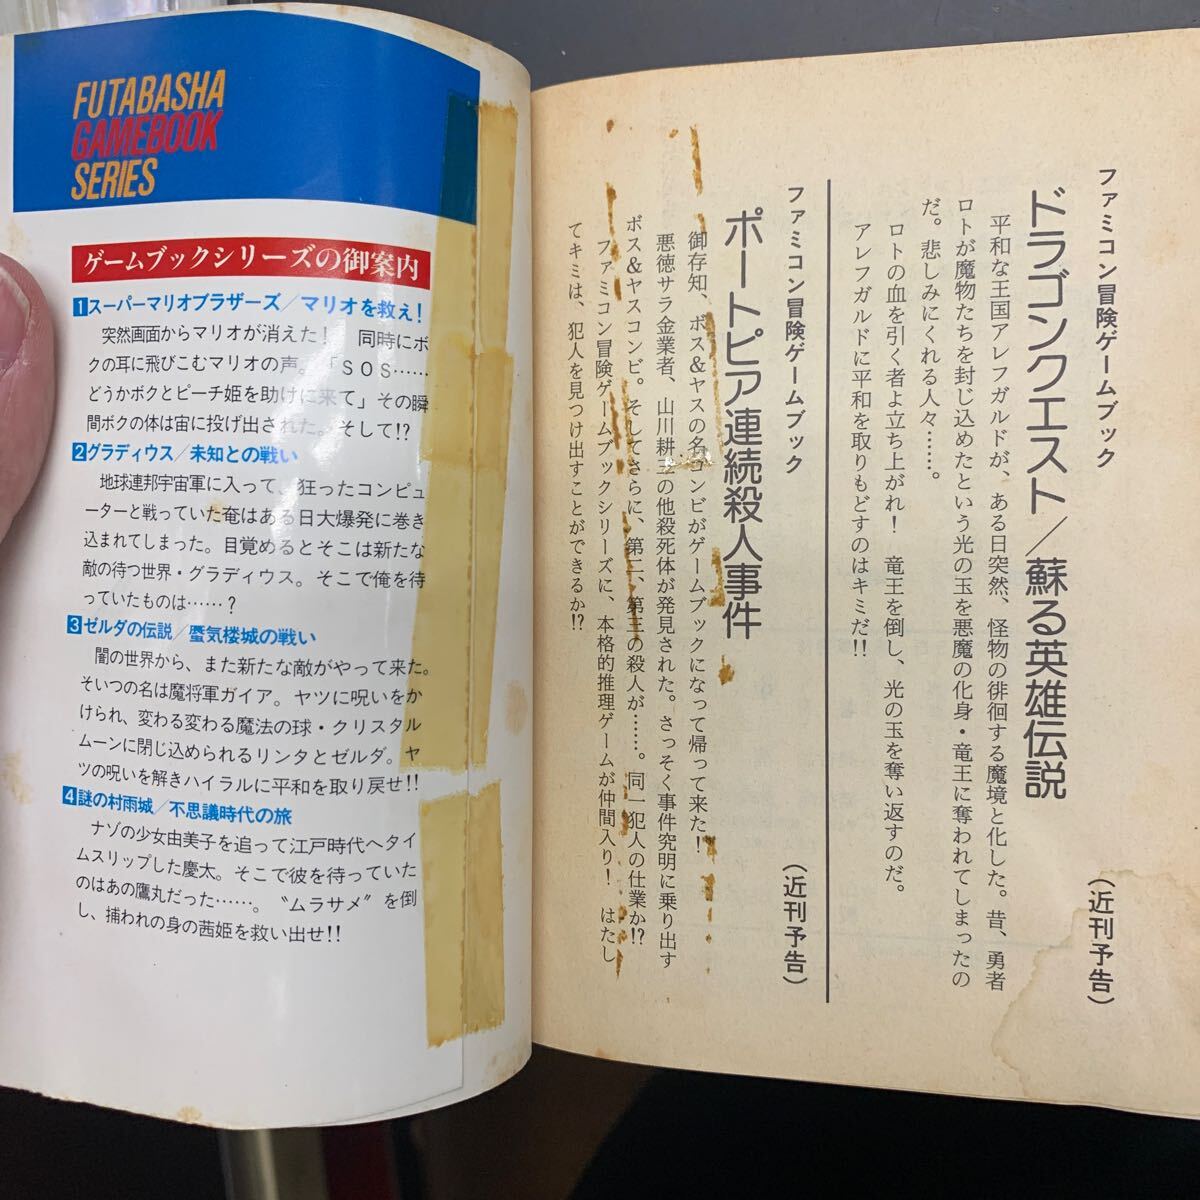 FUTABASHA
GAMEBOOK
SERIES
ゲームブックシリーズの御案内
1スーパーマリオブラザーズ/マリオを救え!
突然画面からマリオが消えた! 同時にボ
クの耳に飛びこむマリオの声。「SOS……
どうかボクとピーチ姫を助けに来て」その瞬
間ボクの体は宙に投げ出された。そして!?
2グラディウス/未知との戦い
地球連邦宇宙軍に入って、狂ったコンピュ
ーターと戦っていた俺はある日大爆発に巻き
込まれてしまった。目覚めるとそこは新たな
敵の待つ世界・グラディウス。そこで俺を待
っていたものは……?
3ゼルダの伝説/蜃気楼城の戦い
闇の世界から、また新たな敵がやって来た。
そいつの名は魔将軍ガイア。ヤツに呪いをか
けられ、変わる変わる魔法の球・クリスタル
ムーンに閉じ込められるリンタとゼルダ。ヤ
ツの呪いを解きハイラルに平和を取り戻せ!!
4謎の村雨城/不思議時代の旅
ナゾの少女由美子を追って江戸時代へタイ
ムスリップした慶太。そこで彼を待っていた
のはあの鷹丸だった……。〝ムラサメ〟を倒
し、捕われの身の茜姫を救い出せ!!
ファミコン冒険ゲームブック
(近刊予告)
ドラゴンクエスト/蘇る英雄伝説
平和な王国アレフガルドが、ある日突然、怪物の徘徊する魔境と化した。昔、勇者
ロトが魔物たちを封じ込めたという光の玉を悪魔の化身・竜王に奪われてしまったの
だ。悲しみにくれる人々……。
ロトの血を引く者よ立ち上がれ! 竜王を倒し、光の玉を奪い返すのだ。
アレフガルドに平和を取りもどすのはキミだ!!
ファミコン冒険ゲームブック
(近刊予告)
ポートピア連続殺人事件
御存知、ボス&ヤスの名コンビがゲームブックになって帰って来た!
悪徳サラ金業者、山川耕三の他殺死体が発見された。さっそく事件究明に乗り出す
ボス&ヤスコンビ。そしてさらに、第二、第三の殺人が……。同一犯人の仕業か!?
ファミコン冒険ゲームブックシリーズに、本格的推理ゲームが仲間入り! はたし
てキミは、犯人を見つけ出すことができるか!?